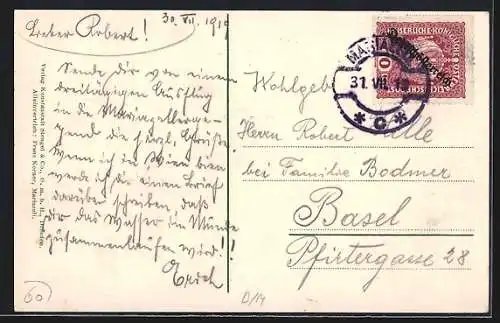 30. VII. 1919
Lieber Robert!
Sende dir von einem
dreitägigen Ausflug
in die Mariazellerge-
gend die herzl. Grüße.
Wenn ich in Wien bin
werde ich dir einen Brief
darüber schreiben daß
dir das Wasser im Munde
zusammenlaufen wird!!
Erich
Verlag Kunstanstalt Stengel & Co., G. m. b. H., Dresden.
Alleinvertrieb: Franz Kerner, Mariazell.
MARIAZELL
31. VII. 19
* C *
Deutschösterreich
Wohlgeb
Herrn Robert
bei Familie Bodmer
Basel
Pfirtergasse 28
60
D/14